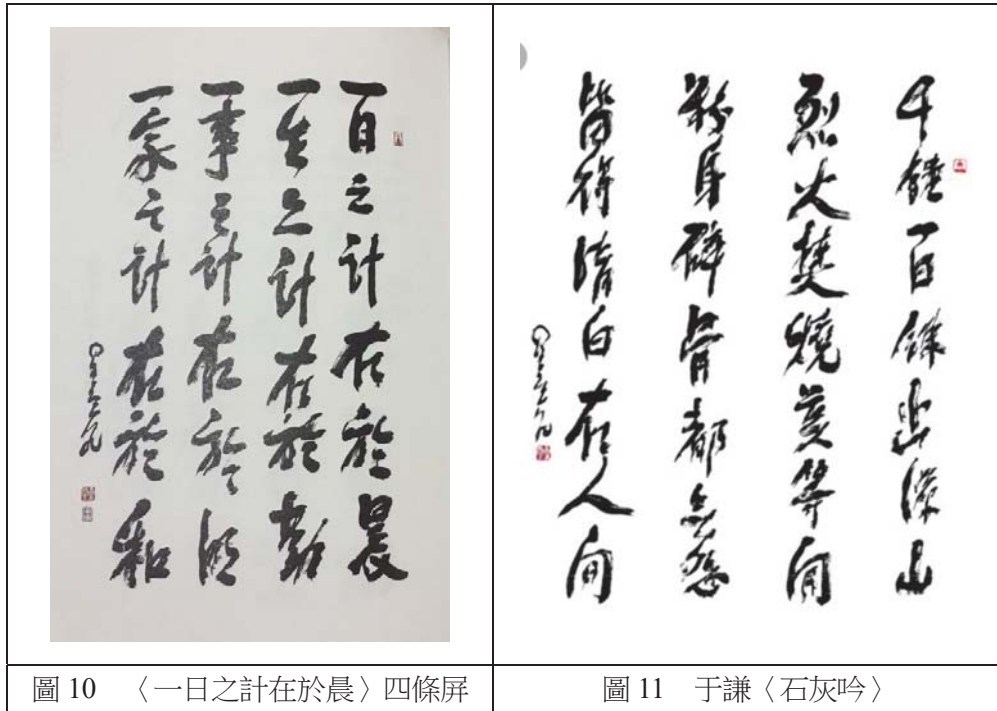 一日之計在於晨
一生之計在於勤
一事之計在於
一家之計在於和
星雲
千錘百鍊出深山
烈火焚燒莫等閒
粉身碎骨都無怨
皆得清白在人間
星雲
圖 10 〈一日之計在於晨〉四條屏
圖 11 于謙〈石灰吟〉